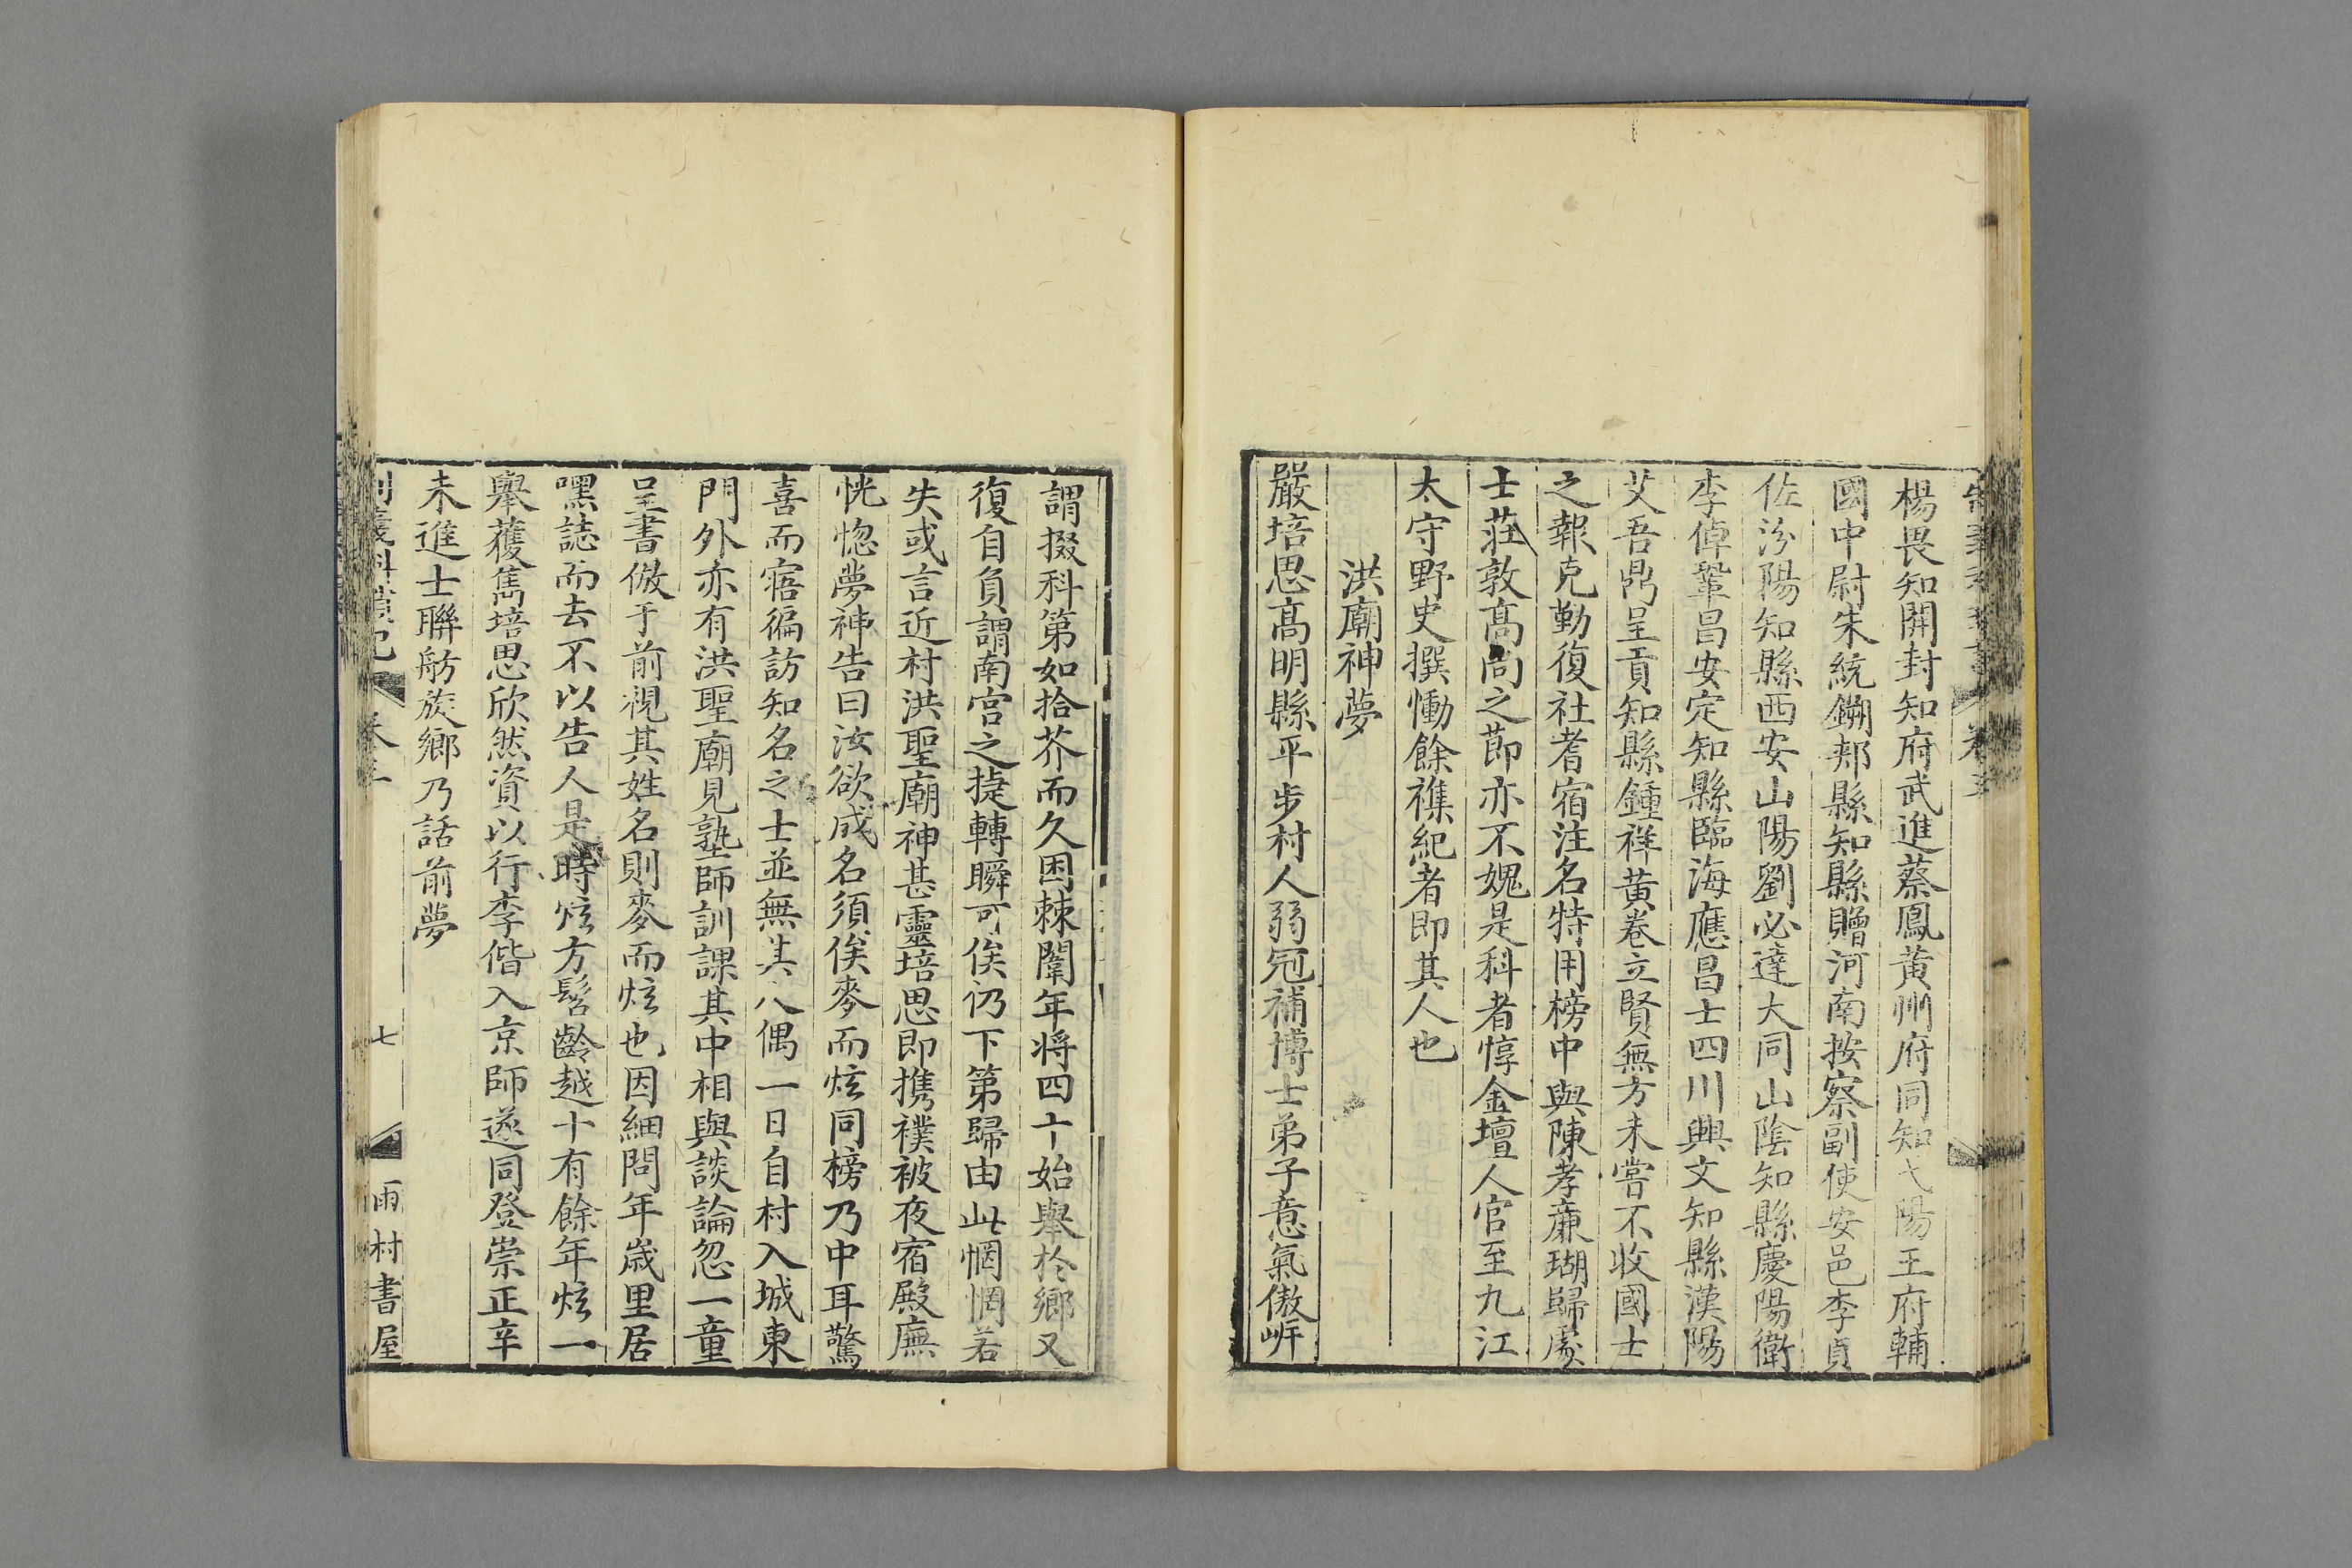 楊畏知開封知府武進蔡鳳黄州府同知弋陽王府輔
國中尉朱統𨮁郟縣知縣贈河南按察副使安邑李貞
佐汾陽知縣西安山陽劉必達大同山陰知縣慶陽衛
李倬鞏昌安定知縣臨海應昌士四川興文知縣漢陽
艾吾鼎呈貢知縣鍾祥黄卷立賢無方未嘗不收國士
之報克勤復社耆宿注名特用榜中與陳孝廉瑚歸處
士莊敦髙尚之莭亦不媿是科者惇金壇人官至九江
太守野史撰慟餘襍紀者即其人也
洪廟神夢
嚴培思髙明縣平步村人弱冠補博士弟子意氣傲岸
謂掇科第如拾芥而久困棘闈年将四十始舉於鄉又
復自負謂南宫之捷轉瞬可俟礽下第歸由此惘惘若
失或言近村洪聖廟神甚靈培思即携襆被夜宿殿廡
恍惚夢神告曰汝欲成名須俟麥而炫同榜乃中耳驚
喜而寤徧訪知名之士並無其人偶一日自村入城東
門外亦有洪聖廟見塾師訓課其中相與談論忽一童
呈書倣于前視其姓名則麥而炫也因細問年歲里居
嘿誌而去不以告人是時炫方髫齡越十有餘年炫一
舉獲雋培思欣然資以行李偕入京師遂同登崇正辛
未進士聯舫旋鄉乃話前夢
制義科瑣記 卷三 七 雨村書屋